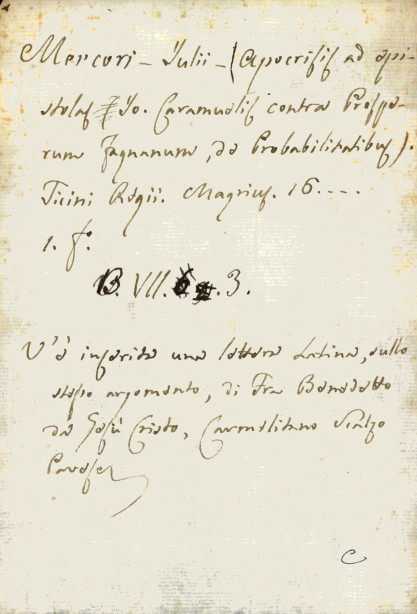 Mercori - Julii - (Apocrisis ad epi-
stolas Jo. Caramuelis contra Prospe-
rum Fagnanum, de Probabilitatibus).
Ticini Regii. Magrius. 16....
1. f.º
B. VII. 3.
V'è inserita una lettera Latina, sullo
stesso argomento, di Fra Benedetto
da Gesù Cristo, Carmelitano Scalzo
Pavese
C